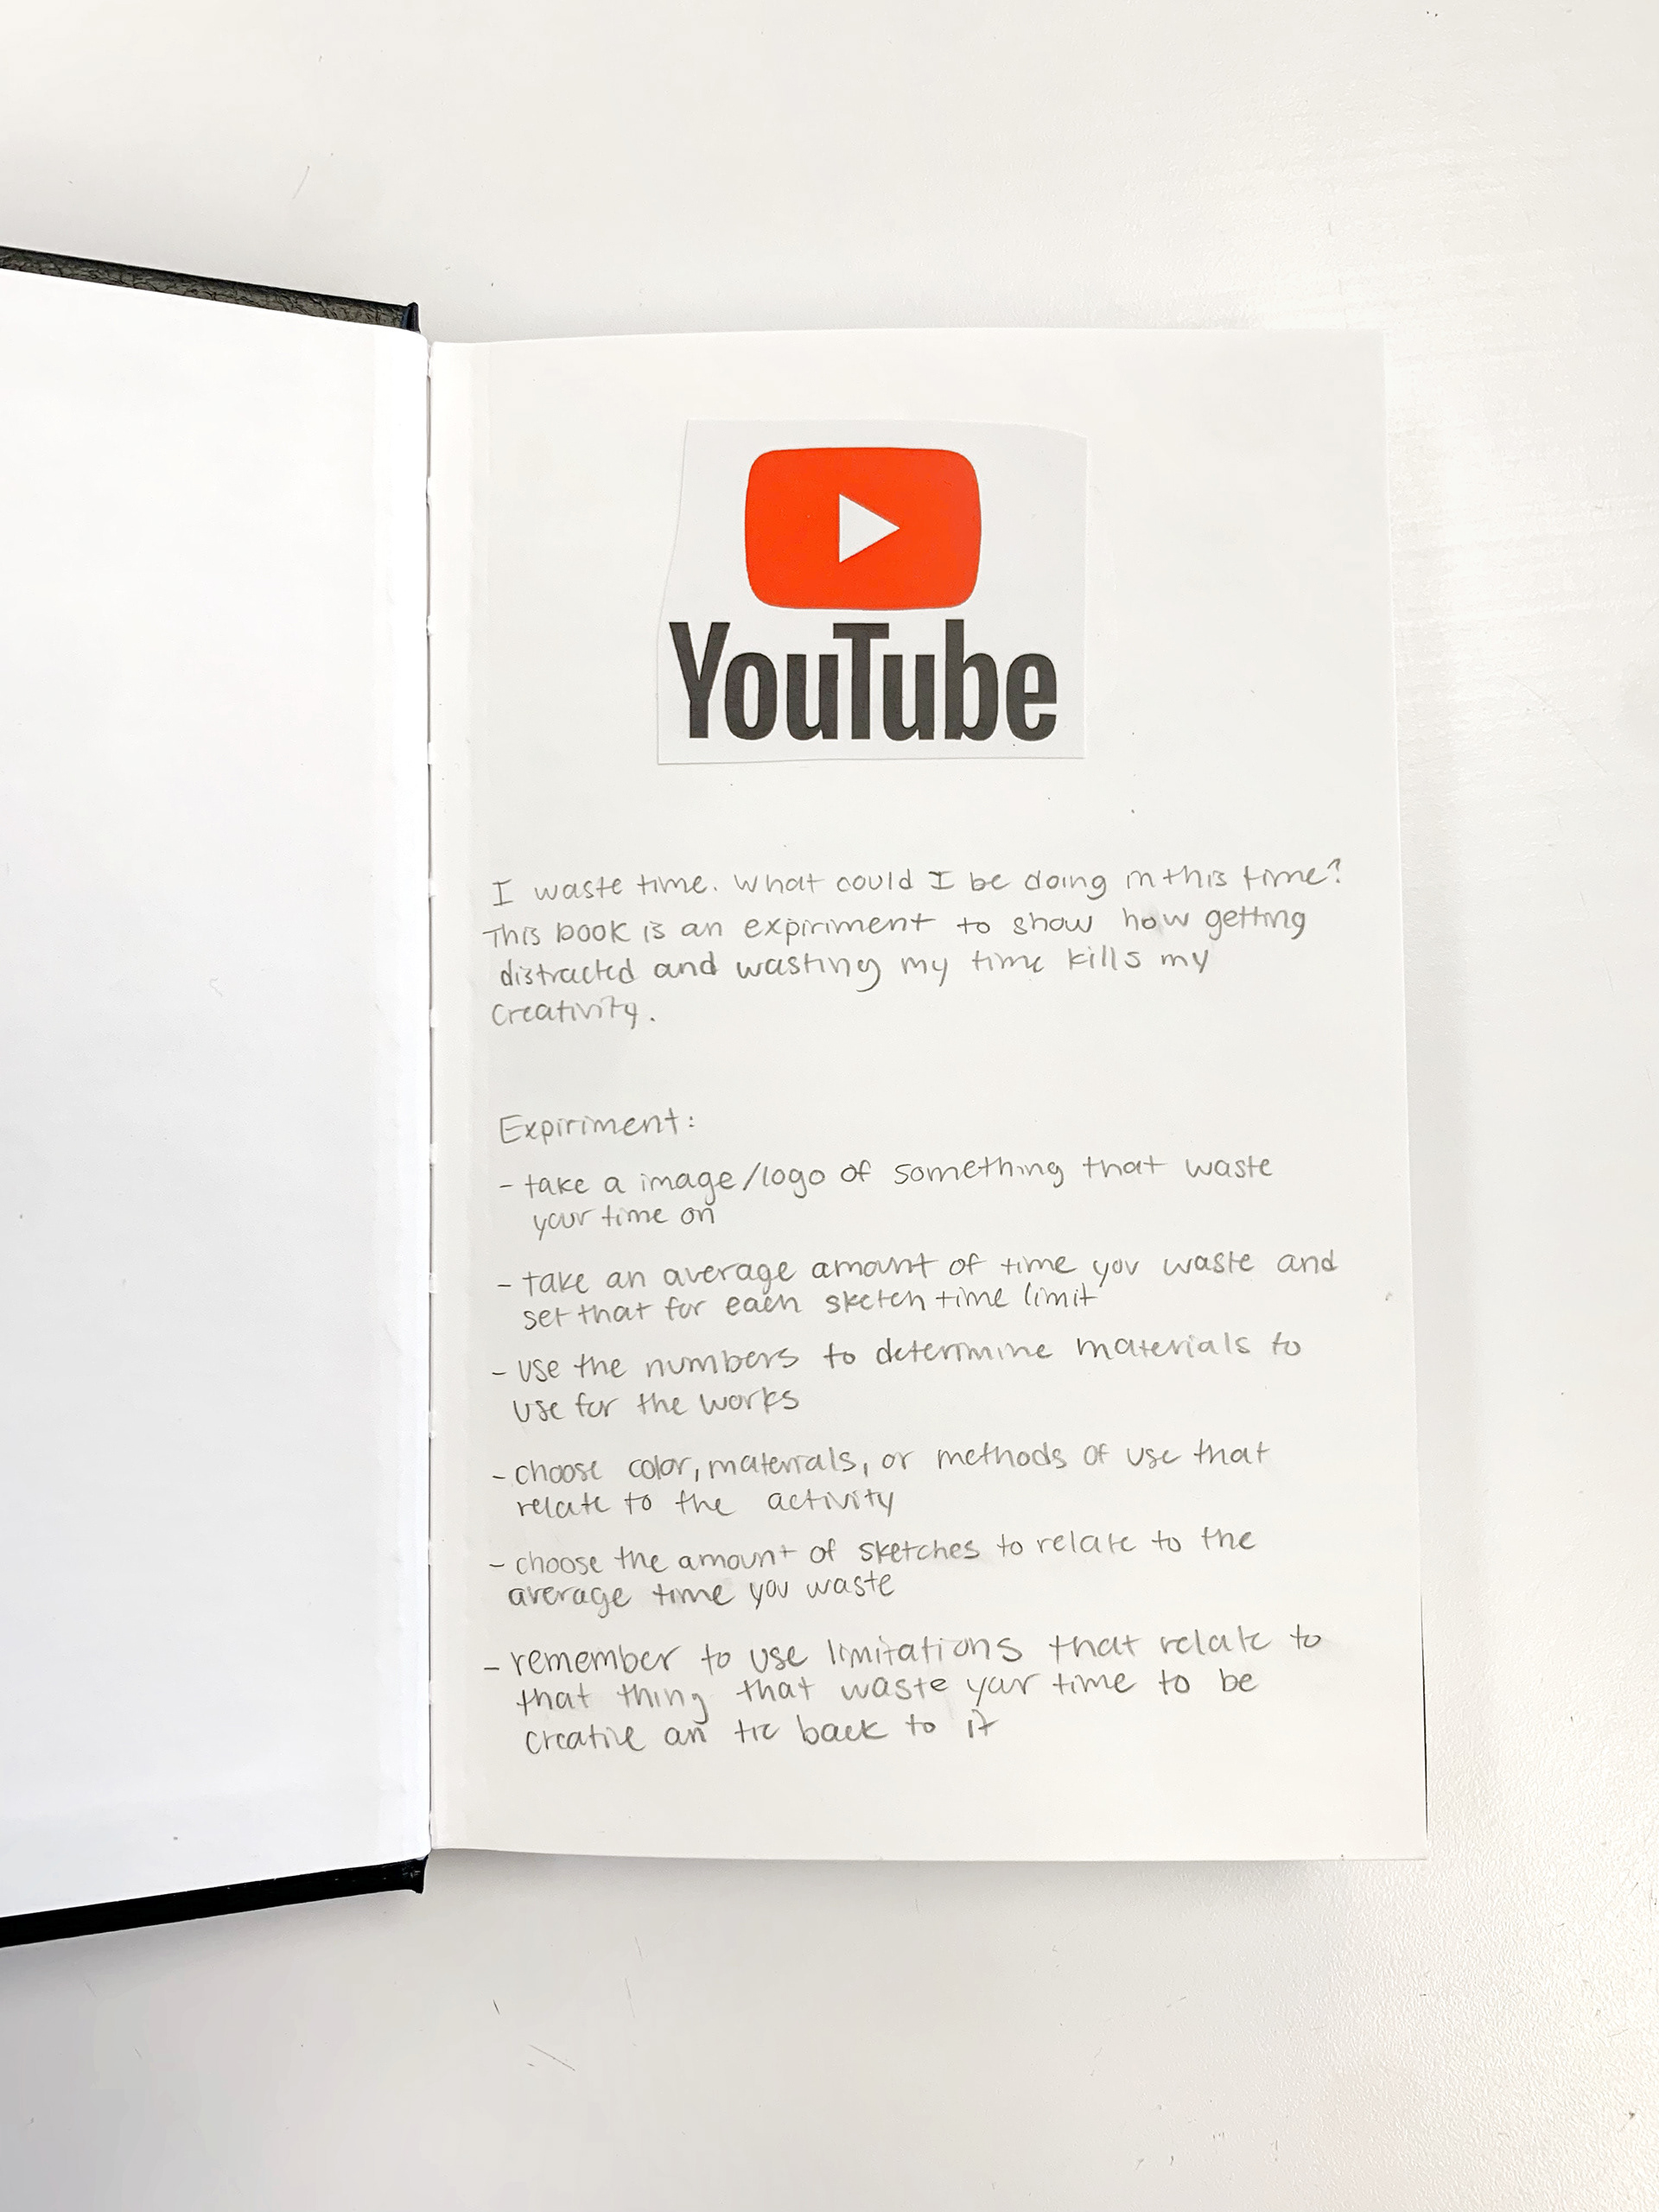 YouTube
I waste time. What could I be doing in this time?
This book is an expiriment to show how getting
distracted and wasting my time kills my
creativity.
Expiriment:
- take a image/logo of something that waste
your time on
- take an average amount of time you waste and
set that for each sketch time limit
- use the numbers to determine materials to
use for the works
- choose color, materials, or methods of use that
relate to the activity
- choose the amount of sketches to relate to the
average time you waste
- remember to use limitations that relate to
that thing that waste your time to be
creative an tie back to it